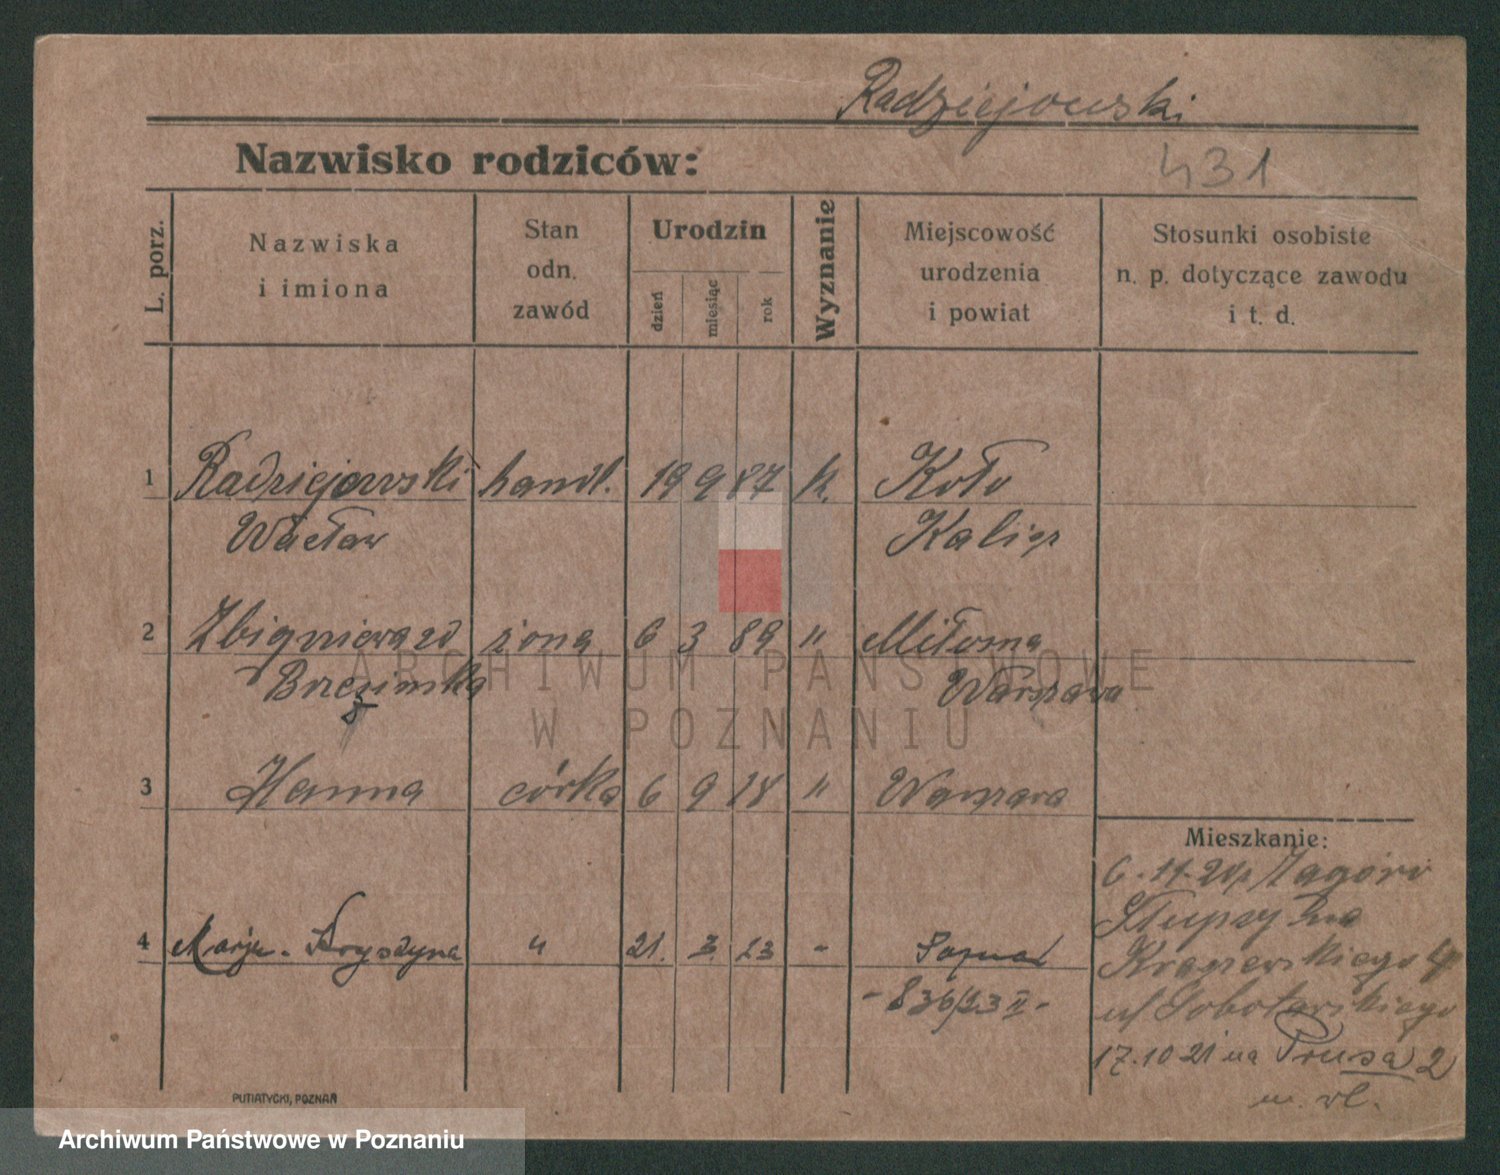 Radziejowski
Nazwisko rodziców:
431
L. porz.
Nazwiska
i imiona
Stan
odn.
zawód
Urodzin
dzień
miesiąc
rok
Wyznanie
Miejscowość
urodzenia
i powiat
Stosunki osobiste
n. p. dotyczące zawodu
i t. d.
1 Radziejowski handl. 19 9 87 k. Koło
Wacław Kalisz
2 żona 6 3 89 " Miłosna
Warszawa
ARCHIWUM PAŃSTWOWE
W POZNANIU
3 Hanna córka 6 9 18 " Warszawa
Mieszkanie:
6.11.20
4 Marja-Krystyna " 21. 3. 23 - Poznań
Kraszewskiego
- 836/23 II -
ul
17.10 21 na Prusa 2
m. wł.
PUTIATYCKI, POZNAŃ
Archiwum Państwowe w Poznaniu